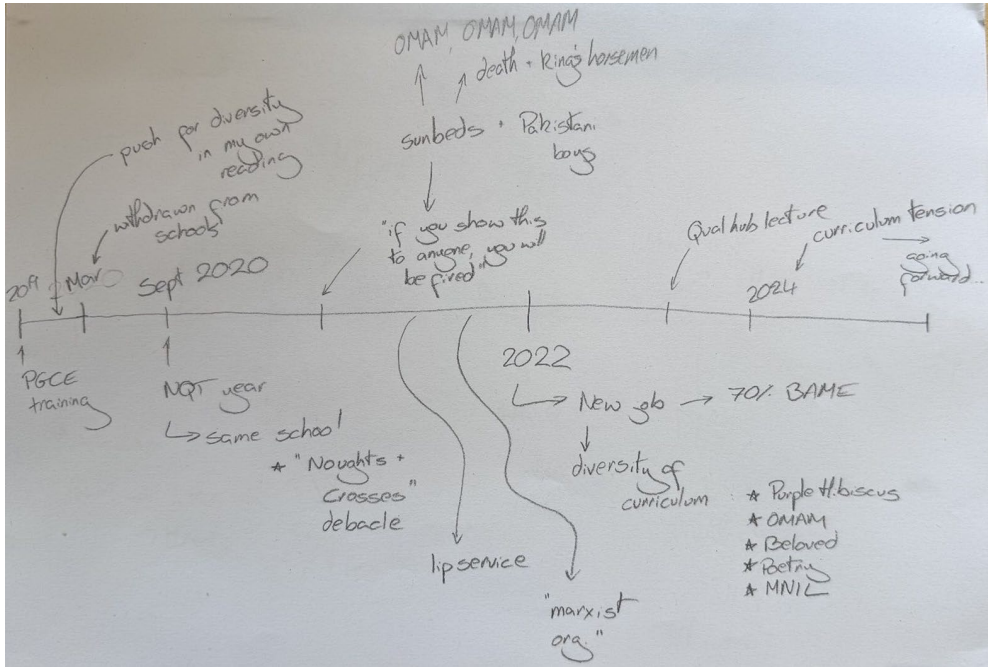 OMAM, OMAM, OMAM
death + King's horsemen
sunbeds + Pakistani
boys
push for diversity
in my own
reading
withdrawn from
schools
"if you show this
to anyone, you will
be fired"
Qual hub lecture
curriculum tension
going
forward...
2019
Mar
Sept 2020
2024
PGCE
training
NQT year
same school
* "Noughts +
Crosses"
debacle
2022
New job
70% BAME
diversity of
curriculum
* Purple Hibiscus
* OMAM
* Beloved
* Poetry
* MNIL
lip service
"marxist
org."